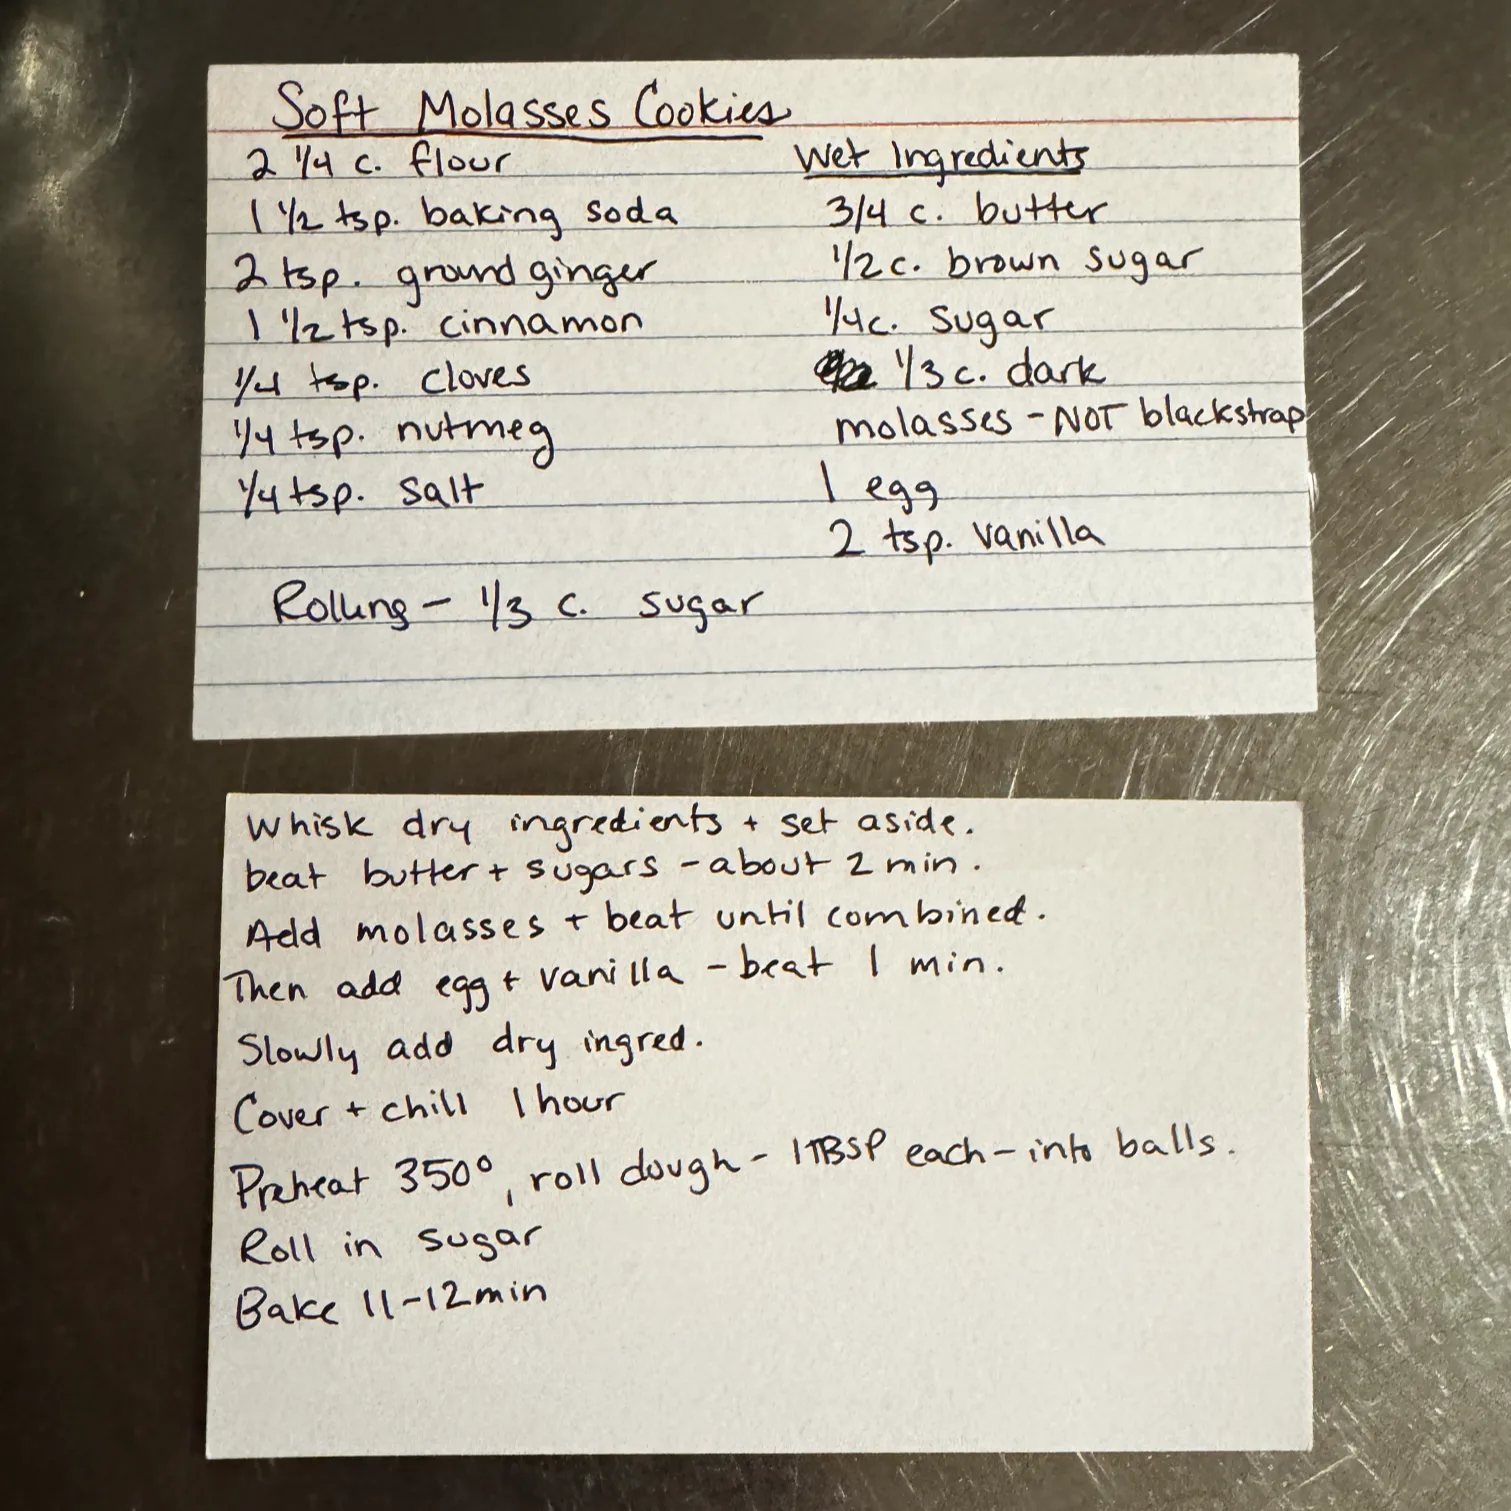 Soft Molasses Cookies
2 1/4 c. flour
1 1/2 tsp. baking soda
2 tsp. ground ginger
1 1/2 tsp. cinnamon
1/4 tsp. cloves
1/4 tsp. nutmeg
1/4 tsp. salt
Wet Ingredients
3/4 c. butter
1/2 c. brown sugar
1/4 c. sugar
1/3 c. dark
molasses - NOT blackstrap
1 egg
2 tsp. vanilla
Rolling - 1/3 c. sugar
Whisk dry ingredients + set aside.
beat butter + sugars - about 2 min.
Add molasses + beat until combined.
Then add egg + vanilla - beat 1 min.
Slowly add dry ingred.
Cover + chill 1 hour
Preheat 350°, roll dough - 1 TBSP each - into balls.
Roll in sugar
Bake 11-12 min